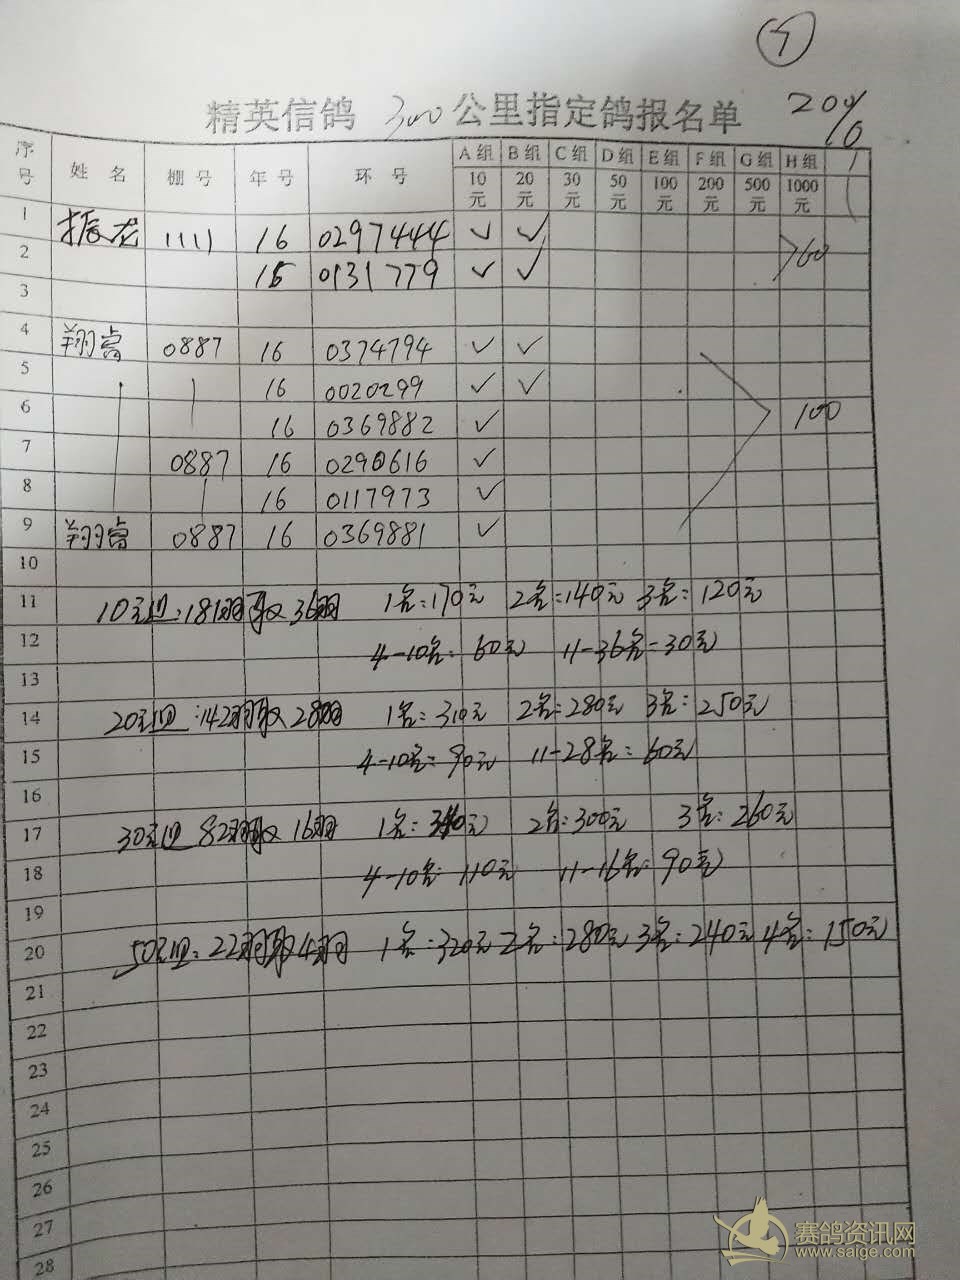 5
精英信鸽 300 公里指定鸽报名单 20%
序号 姓名 棚号 年号 环号 A组 B组 C组 D组 E组 F组 G组 H组
10元 20元 30元 50元 100元 200元 500元 1000元
1 振龙 1111 16 0297444 ✓ ✓
2 15 0131779 ✓ ✓ 60
3
4 翔富 0887 16 0374794 ✓ ✓
5 16 0020299 ✓ ✓
6 16 0369882 ✓ 100
7 0887 16 0290616 ✓
8 16 0117973 ✓
9 翔富 0887 16 0369881 ✓
10
11 10元组:181羽取36羽 1名:170元 2名:140元 3名:120元
12 4-10名:60元 11-36名:30元
13
14 20元组:142羽取28羽 1名:310元 2名:280元 3名:250元
15 4-10名:90元 11-28名:60元
16
17 30元组 82羽取16羽 1名: 2名:300元 3名:260元
18 4-10名:110元 11-16名:90元
19
20 50元组:22羽取4羽 1名:320元 2名:280元 3名:240元 4名:150元
21
22
23
24
25
26
27
28
赛鸽资讯网
www.saige.com